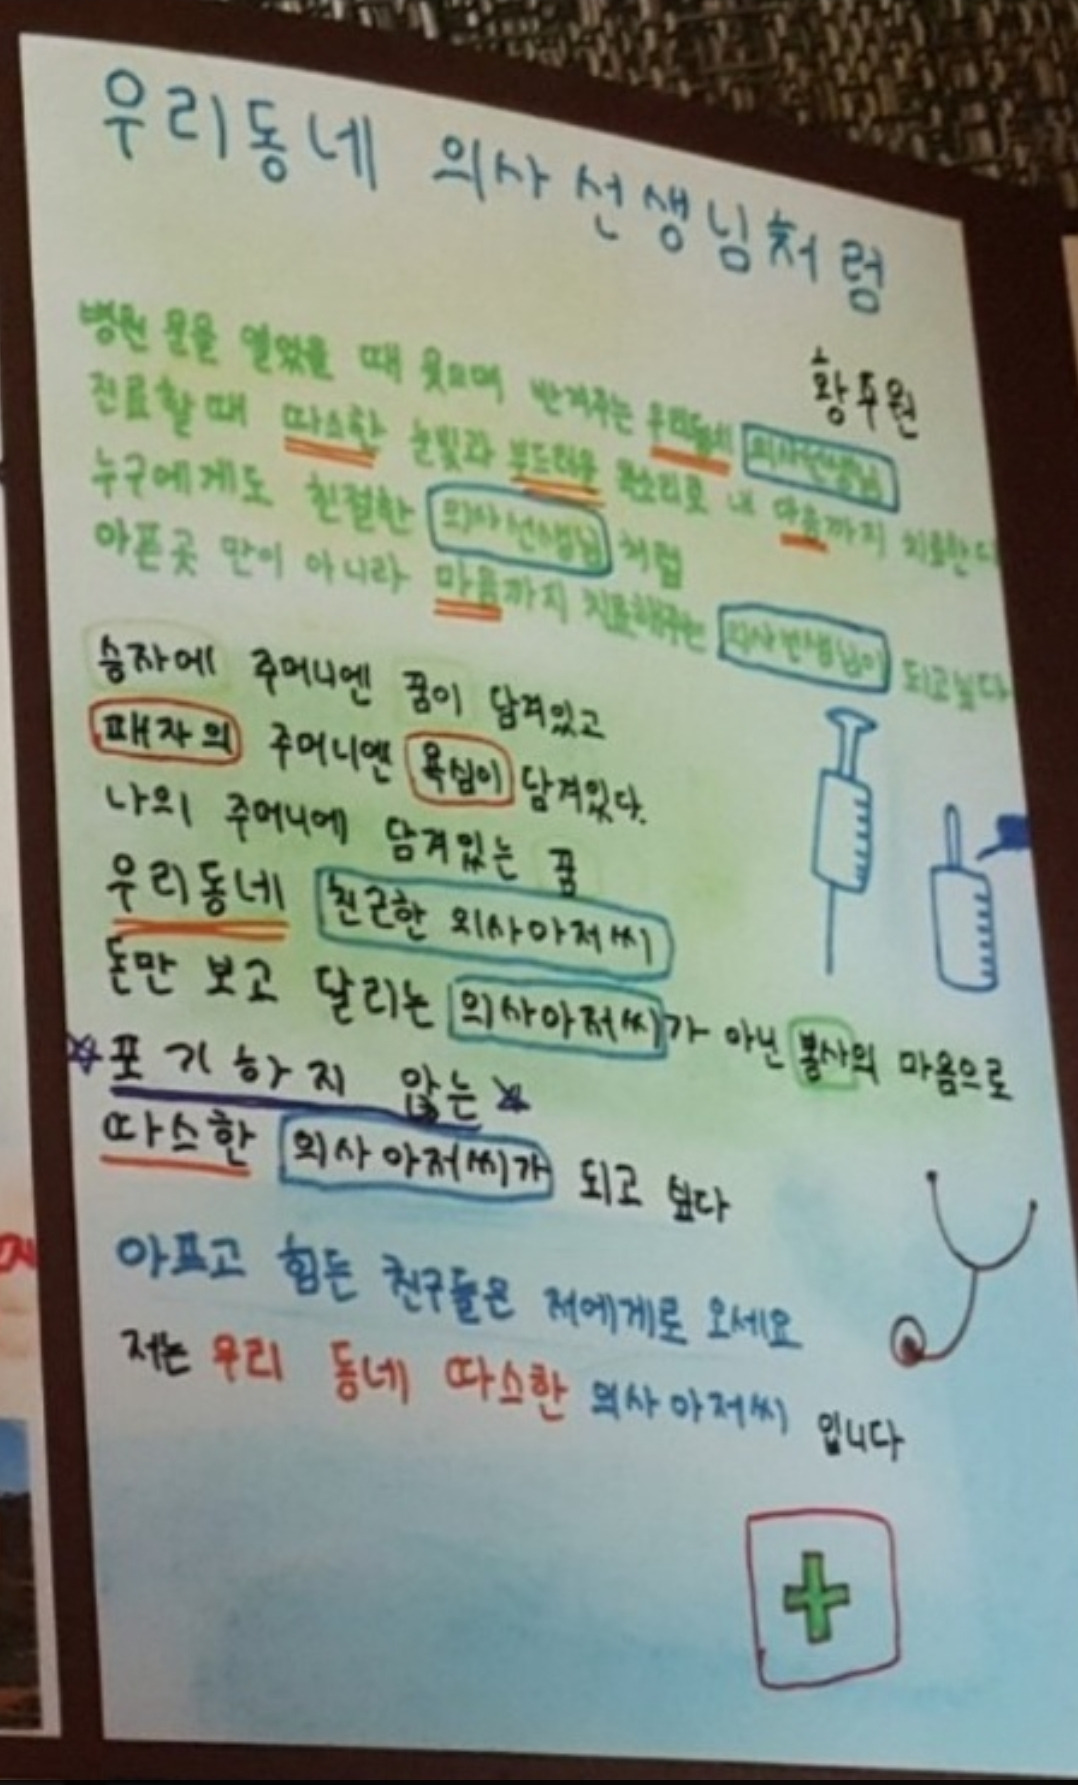 우리동네 의사선생님처럼
황주원
병원 문을 열었을 때 웃으며 반겨주는 우리동네 의사선생님
진료할때 따스한 눈빛과 부드러운 목소리로 내 마음까지 치료한다
누구에게도 친절한 의사선생님 처럼
아픈곳 만이 아니라 마음까지 치료해주는 의사선생님이 되고싶다
승자에 주머니엔 꿈이 담겨있고
패자의 주머니엔 욕심이 담겨있다.
나의 주머니에 담겨있는 꿈
우리동네 친근한 의사아저씨
돈만 보고 달리는 의사아저씨가 아닌 봉사의 마음으로
포기하지 않는
따스한 의사아저씨가 되고 싶다
아프고 힘든 친구들은 저에게로 오세요
저는 우리 동네 따스한 의사아저씨 입니다